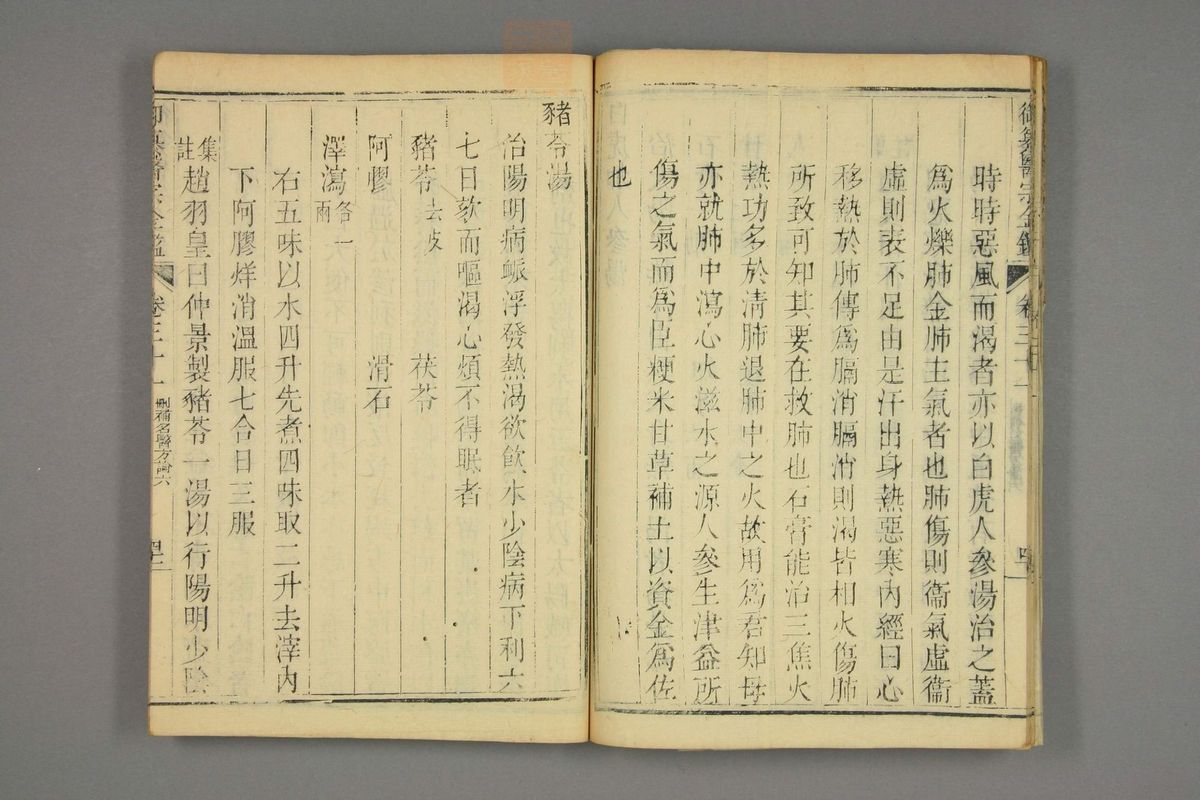 御纂醫宗金鑑 卷三十一
時時惡風而渴者亦以白虎人參湯治之蓋
爲火爍肺金肺主氣者也肺傷則衞氣虛衞
虛則表不足由是汗出身熱惡寒內經曰心
移熱於肺傳爲膈消膈消則渴皆相火傷肺
所致可知其要在救肺也石膏能治三焦火
熱功多於清肺退肺中之火故用爲君知母
亦就肺中瀉心火滋水之源人參生津益所
傷之氣而爲臣粳米甘草補土以資金爲佐
也
豬苓湯
治陽明病脈浮發熱渴欲飲水少陰病下利六
七日欬而嘔渴心煩不得眠者
豬苓去皮 茯苓
阿膠 滑石
澤瀉各一兩
右五味以水四升先煮四味取二升去滓內
下阿膠烊消溫服七合日三服
集註趙羽皇曰仲景製豬苓一湯以行陽明少陰
御纂醫宗金鑑 卷三十一 刪補名醫方論六